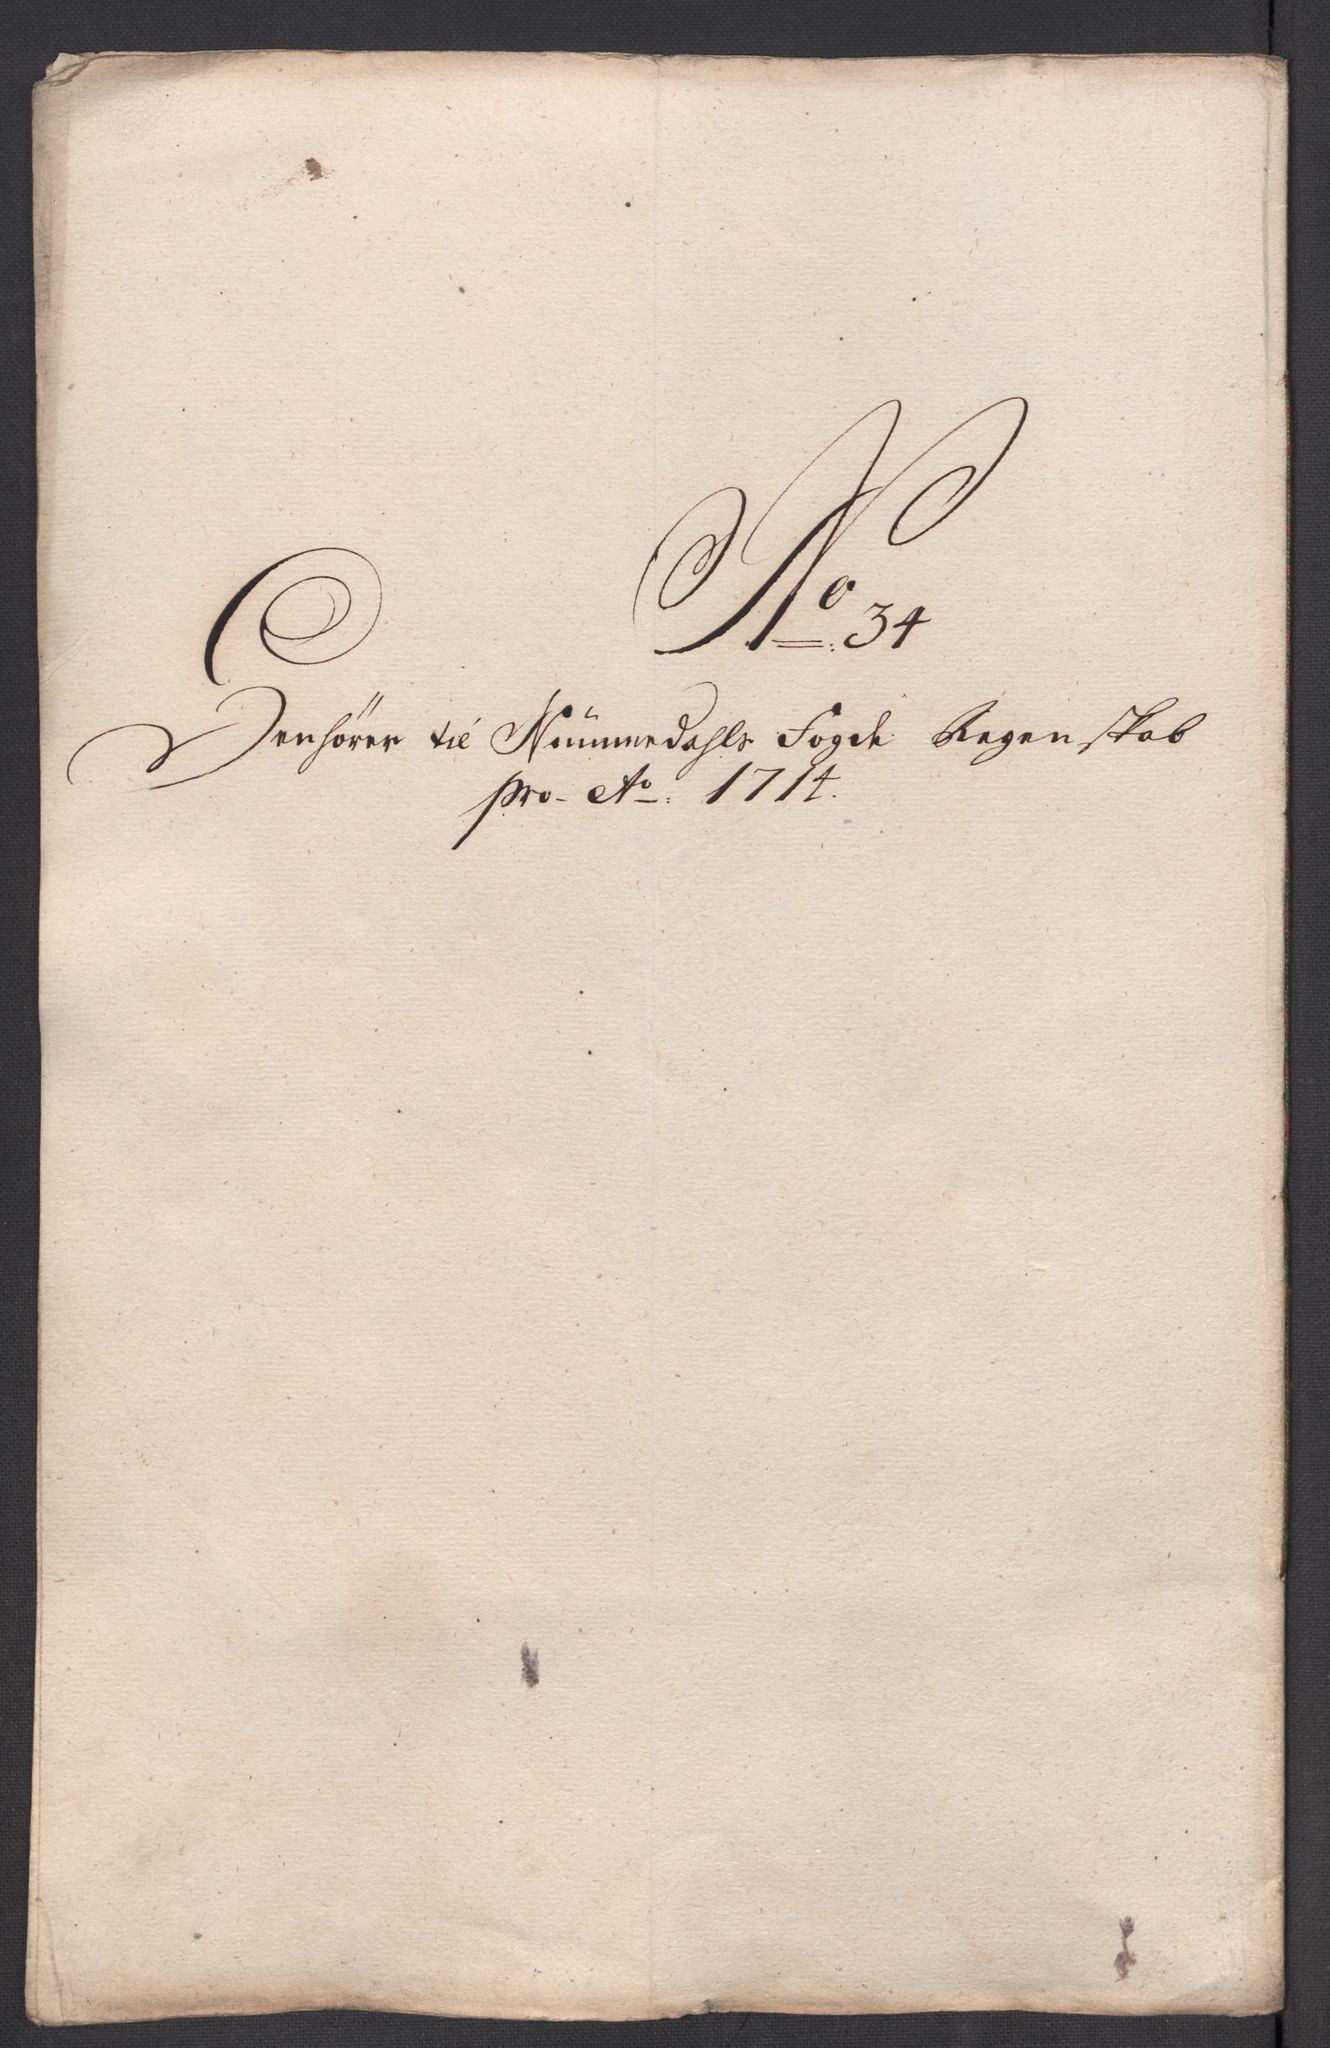 No: 34
Henhører til Nummedahls Fogde Regenskab
pro Ao: 1714.